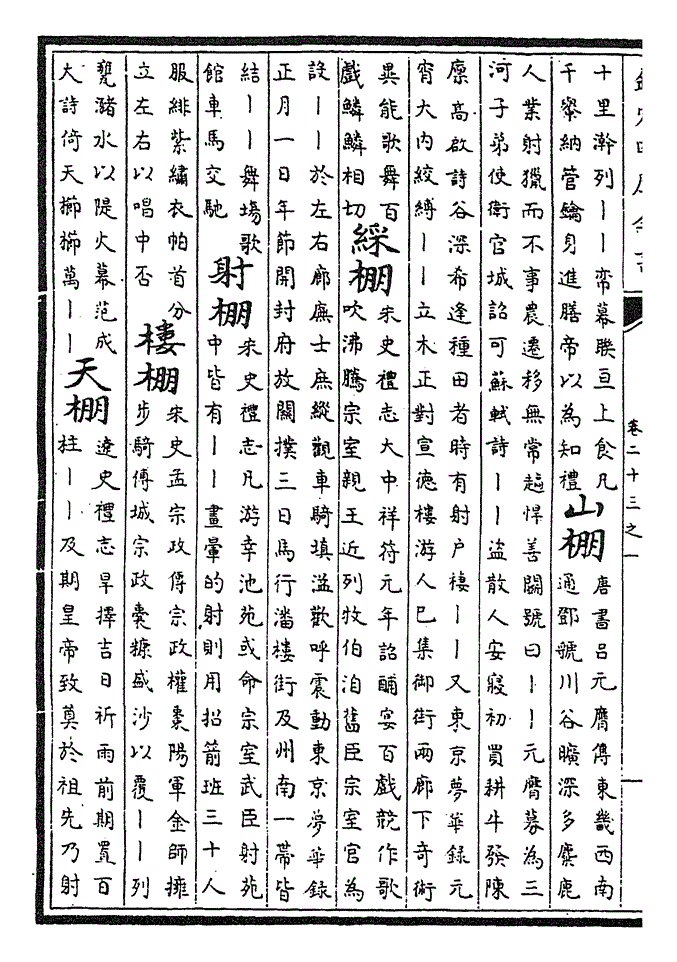 欽定四庫全書
卷二十三之一
十里瀚列丨丨帟幕聯亘上食凡
千轝納管鑰身進膳帝以為知禮
山棚
唐書呂元膺傳東畿西南
通鄧虢川谷曠深多麋鹿
人業射獵而不事農遷移無常趫悍善鬬號曰丨丨元膺募為三
河子弟使衛宫城詔可蘇軾詩丨丨盜散人安寢初買耕牛發陳
廪高啟詩谷深希逢種田者時有射户棲丨丨又東京夢華録元
宵大内絞縛丨丨立木正對宣德樓游人已集御街兩廊下奇術
異能歌舞百
戲鱗鱗相切
綵棚
宋史禮志大中祥符元年詔酺宴百戲競作歌
吹沸騰宗室親王近列牧伯洎舊臣宗室官為
設丨丨於左右廊廡士庶縱觀車騎填溢歡呼震動東京夢華録
正月一日年節開封府放關撲三日馬行潘樓街及州南一帶皆
結丨丨舞塲歌
館車馬交馳
射棚
宋史禮志凡游幸池苑或命宗室武臣射苑
中皆有丨丨畫暈的射則用招箭班三十人
服緋紫繡衣帕首分
立左右以唱中否
樓棚
宋史孟宗政傳宗政權棗陽軍金師擁
步騎傅城宗政囊糠盛沙以覆丨丨列
甕瀦水以隄火幕范成
大詩倚天櫛櫛萬丨丨
天棚
遼史禮志旱擇吉日祈雨前期置百
柱丨丨及期皇帝致奠於祖先乃射